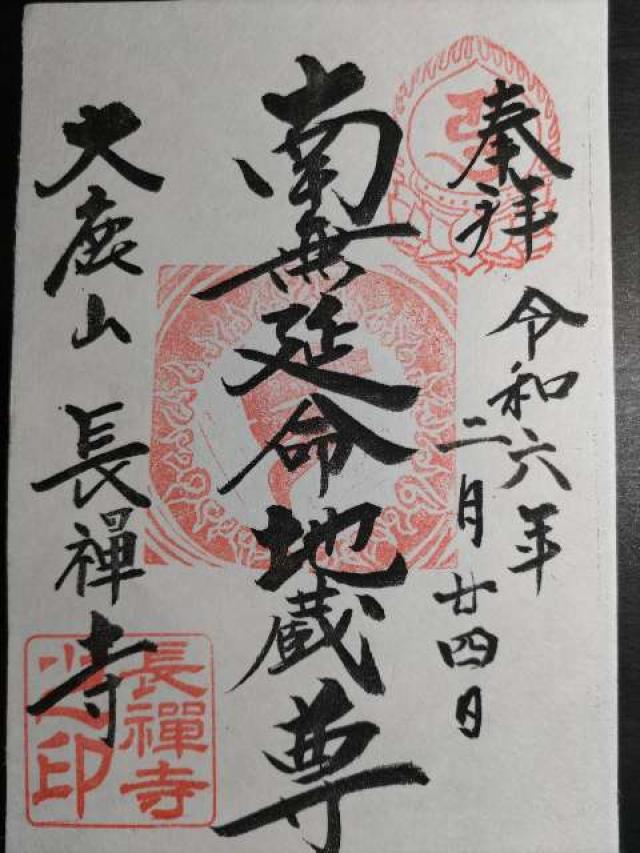 奉拝
令和六年
二月廿四日
南無延命地蔵尊
大鹿山 長禪寺
長禪寺
之印